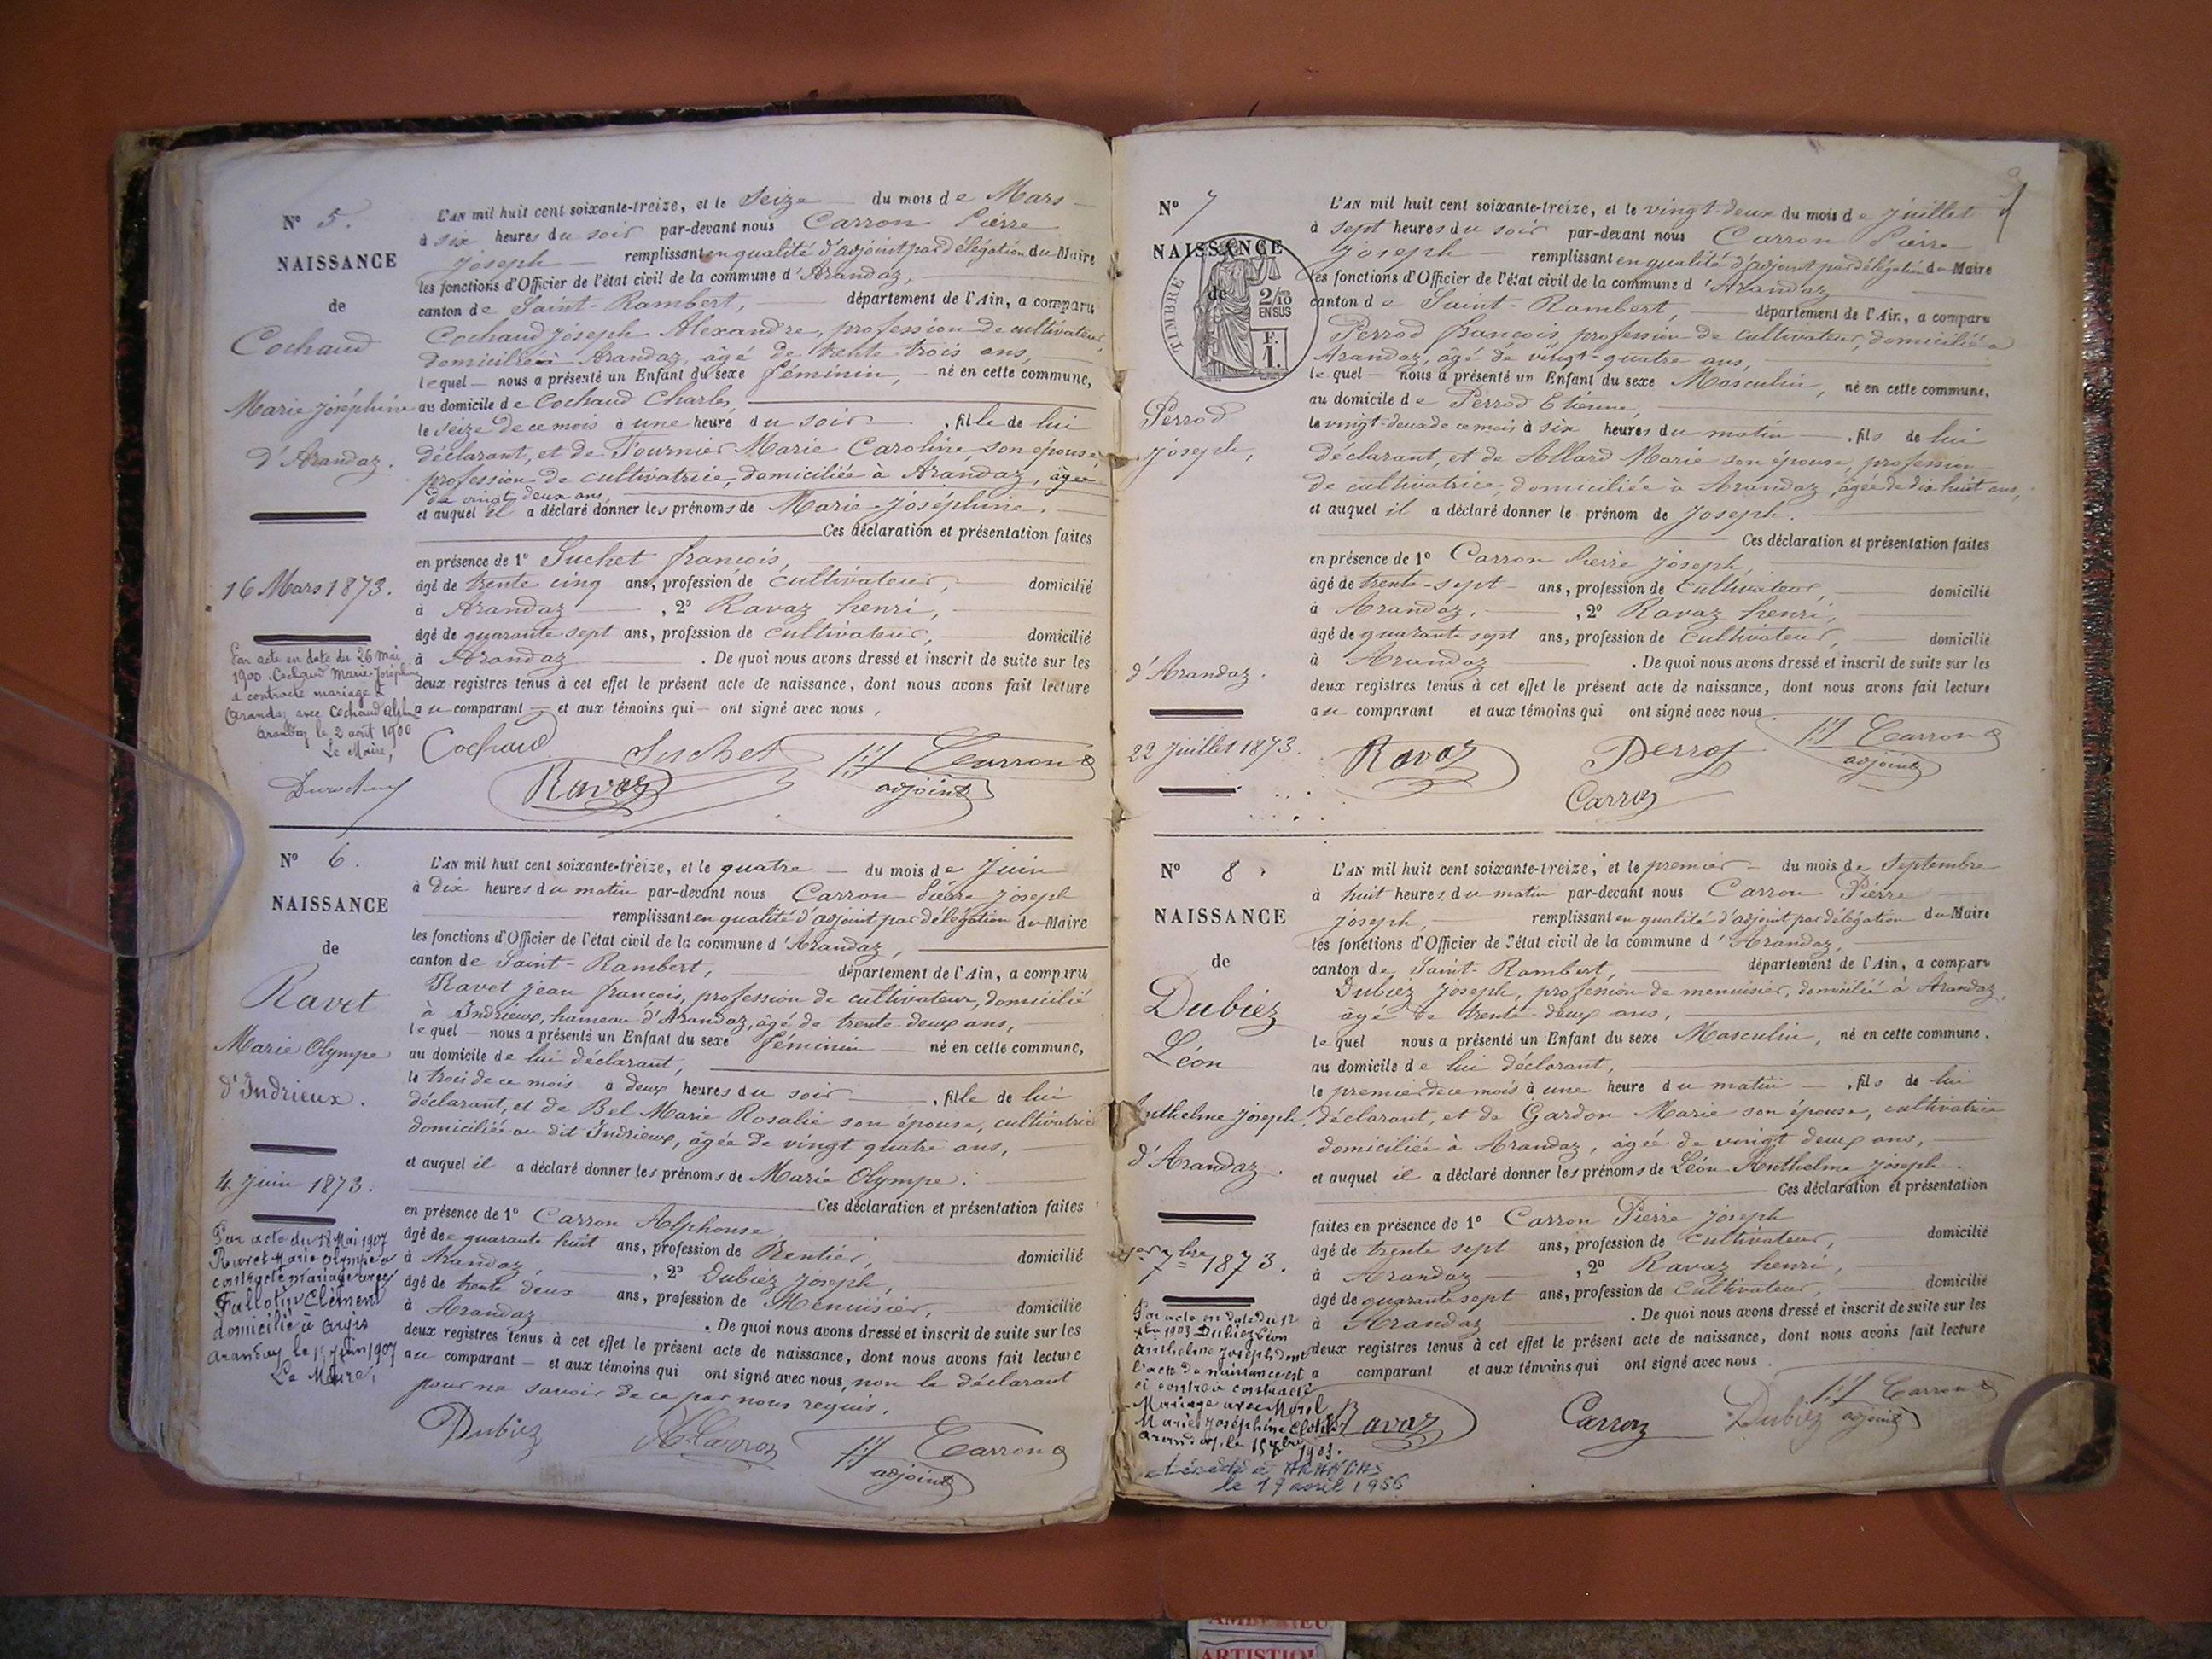 N° 5.
NAISSANCE
de
Cochaud
Marie Joséphine
d'Arandaz.
16 Mars 1873.
Par acte en date du 26 mai
1900 Cochaud Marie-Joséphine
a contracté mariage à
Arandaz avec Cochaud Alph
Arandaz le 2 août 1900
Le Maire,
L'AN mil huit cent soixante-treize, et le Seize du mois de Mars
à six heures du soir par-devant nous Carron Pierre
Joseph remplissant en qualité d'adjoint par délégation du Maire
les fonctions d'Officier de l'état civil de la commune d'Arandaz,
canton de Saint-Rambert, département de l'Ain, a comparu
Cochaud Joseph Alexandre, profession de cultivateur,
domicilié à Arandaz, âgé de trente trois ans,
lequel nous a présenté un Enfant du sexe féminin, né en cette commune,
au domicile de Cochaud Charles,
le seize de ce mois à une heure du soir, fille de lui
déclarant, et de Tournier Marie Caroline, son épouse,
profession de cultivatrice, domiciliée à Arandaz, âgée
de vingt deux ans,
et auquel il a déclaré donner les prénoms de Marie-Joséphine.
Ces déclaration et présentation faites
en présence de 1° Suchet françois,
âgé de trente cinq ans, profession de cultivateur, domicilié
à Arandaz, 2° Ravaz henri,
âgé de quarante sept ans, profession de cultivateur, domicilié
à Arandaz. De quoi nous avons dressé et inscrit de suite sur les
deux registres tenus à cet effet le présent acte de naissance, dont nous avons fait lecture
au comparant et aux témoins qui ont signé avec nous,
Cochaud Suchet Carron
Ravaz adjoint
N° 6.
NAISSANCE
de
Ravet
Marie Olympe
d'Indrieux.
4 Juin 1873.
Par acte du 18 Mai 1907
Ravet Marie Olympe a
contracté mariage avec
Fallotin Clément
domicilié à Argis
Arandaz le 15 Juin 1907
Le Maire,
L'AN mil huit cent soixante-treize, et le quatre du mois de Juin
à dix heures du matin par-devant nous Carron Pierre Joseph
remplissant en qualité d'adjoint par délégation du Maire
les fonctions d'Officier de l'état civil de la commune d'Arandaz,
canton de Saint-Rambert, département de l'Ain, a comparu
Ravet Jean françois, profession de cultivateur, domicilié
à Indrieux, hameau d'Arandaz, âgé de trente deux ans,
lequel nous a présenté un Enfant du sexe féminin né en cette commune,
au domicile de lui déclarant,
le trois de ce mois à deux heures du soir, fille de lui
déclarant, et de Bel Marie Rosalie son épouse, cultivatrice
domiciliée au dit Indrieux, âgée de vingt quatre ans,
et auquel il a déclaré donner les prénoms de Marie Olympe.
Ces déclaration et présentation faites
en présence de 1° Carron Alphonse
âgé de quarante huit ans, profession de Rentier, domicilié
à Arandaz, 2° Dubiez Joseph,
âgé de trente deux ans, profession de Menuisier, domicilié
à Arandaz. De quoi nous avons dressé et inscrit de suite sur les
deux registres tenus à cet effet le présent acte de naissance, dont nous avons fait lecture
au comparant et aux témoins qui ont signé avec nous, non le déclarant
pour ne savoir de ce par nous requis.
Dubiez A Carron Carron
adjoint
N° 7
NAISSANCE
de
TIMBRE
2/10
EN SUS
F.
1.
Perrod
Joseph,
d'Arandaz.
22 Juillet 1873.
L'AN mil huit cent soixante-treize, et le vingt-deux du mois de Juillet
à sept heures du soir par-devant nous Carron Pierre
Joseph remplissant en qualité d'adjoint par délégation du Maire
les fonctions d'Officier de l'état civil de la commune d'Arandaz
canton de Saint-Rambert, département de l'Ain, a comparu
Perrod françois, profession de cultivateur, domicilié à
Arandaz, âgé de vingt-quatre ans,
lequel nous a présenté un Enfant du sexe Masculin, né en cette commune,
au domicile de Perrod Etienne,
le vingt-deux de ce mois à six heures du matin, fils de lui
déclarant, et de Allard Marie son épouse, profession
de cultivatrice, domiciliée à Arandaz, âgée de dix huit ans,
et auquel il a déclaré donner le prénom de Joseph.
Ces déclaration et présentation faites
en présence de 1° Carron Pierre Joseph,
âgé de trente-sept ans, profession de Cultivateur, domicilié
à Arandaz, 2° Ravaz henri,
âgé de quarante sept ans, profession de Cultivateur, domicilié
à Arandaz. De quoi nous avons dressé et inscrit de suite sur les
deux registres tenus à cet effet le présent acte de naissance, dont nous avons fait lecture
au comparant et aux témoins qui ont signé avec nous
Ravaz Perrod Carron
Carron adjoint
N° 8
NAISSANCE
de
Dubiez
Léon
Anthelme Joseph,
d'Arandaz.
1er 7bre 1873.
Par acte en date du 12
1903 Dubiez Léon
Anthelme Joseph dont
l'acte de naissance est
ci contre a contracté
Mariage avec Morel
Marie Joséphine Clotilde
Arandaz, le 15 1903.
Décédé à ARANDAS
le 19 avril 1956
L'AN mil huit cent soixante-treize, et le premier du mois de Septembre
à huit heures du matin par-devant nous Carron Pierre
Joseph, remplissant en qualité d'adjoint par délégation du Maire
les fonctions d'Officier de l'état civil de la commune d'Arandaz,
canton de Saint-Rambert, département de l'Ain, a comparu
Dubiez Joseph, profession de menuisier, domicilié à Arandaz,
âgé de trente-deux ans,
lequel nous a présenté un Enfant du sexe Masculin, né en cette commune.
au domicile de lui déclarant,
le premier de ce mois à une heure du matin, fils de lui
déclarant, et de Gardon Marie son épouse, cultivatrice
domiciliée à Arandaz, âgée de vingt deux ans,
et auquel il a déclaré donner les prénoms de Léon Anthelme Joseph.
Ces déclaration et présentation
faites en présence de 1° Carron Pierre Joseph
âgé de trente sept ans, profession de Cultivateur, domicilié
à Arandaz, 2° Ravaz henri,
âgé de quarante sept ans, profession de Cultivateur, domicilié
à Arandaz. De quoi nous avons dressé et inscrit de suite sur les
deux registres tenus à cet effet le présent acte de naissance, dont nous avons fait lecture
a comparant et aux témoins qui ont signé avec nous.
Ravaz Carron Dubiez Carron
adjoint
ARTISTIQU